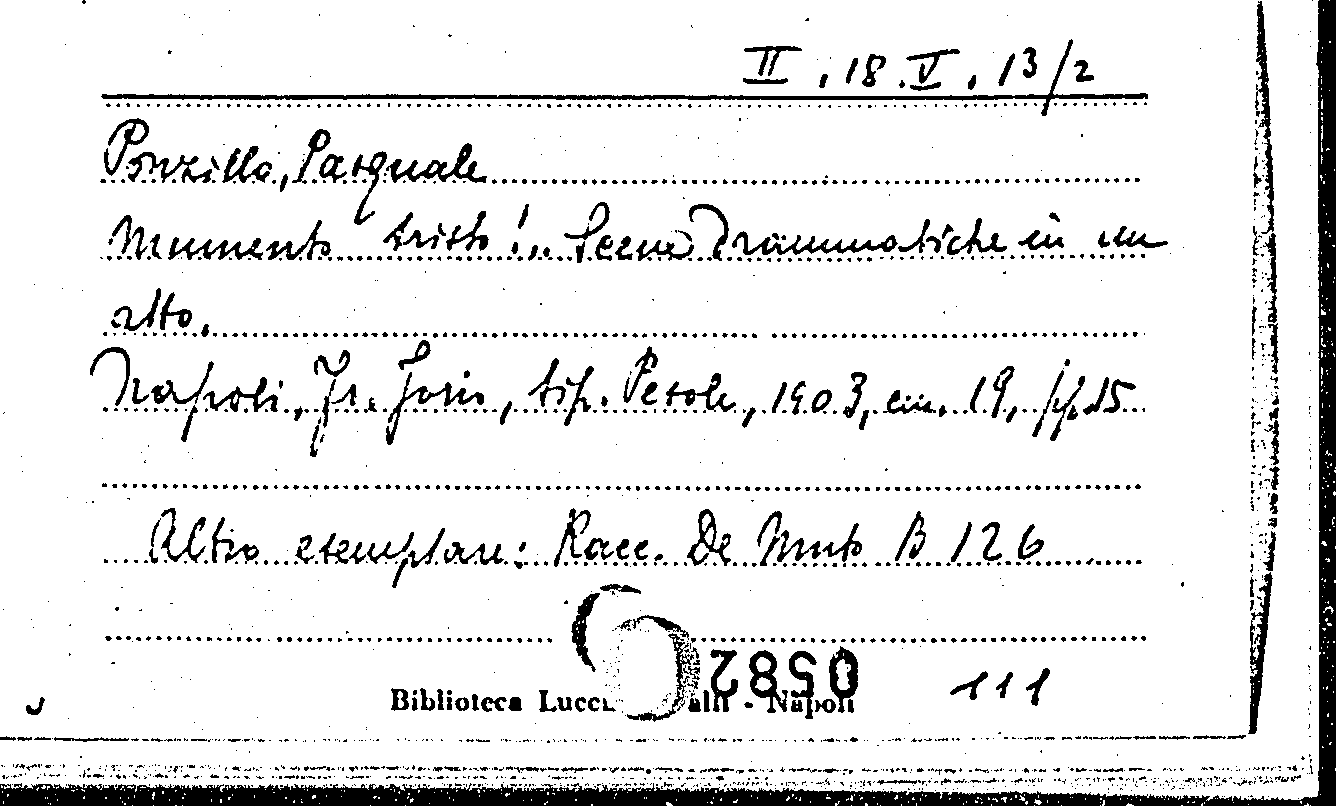 II.18.V.13/2
Ponzillo, Pasquale
Mumento tristo!.. Scene Drammatiche in un
atto.
Napoli, Fr. Jorio, tip. Pesole, 1903, cm. 19, pp. 15
Altro esemplare: Racc. De Muto B 126
0582
111
Biblioteca Lucch alli - Napoli